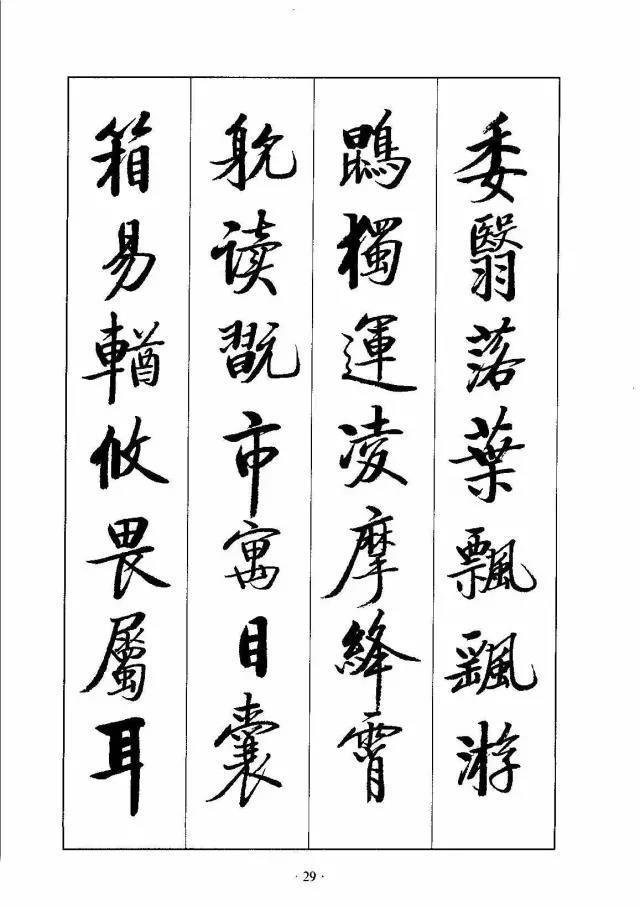 委翳落葉飄飖游
鵾獨運凌摩絳霄
躭读翫市寓目囊
箱易輶攸畏屬耳
· 29 ·